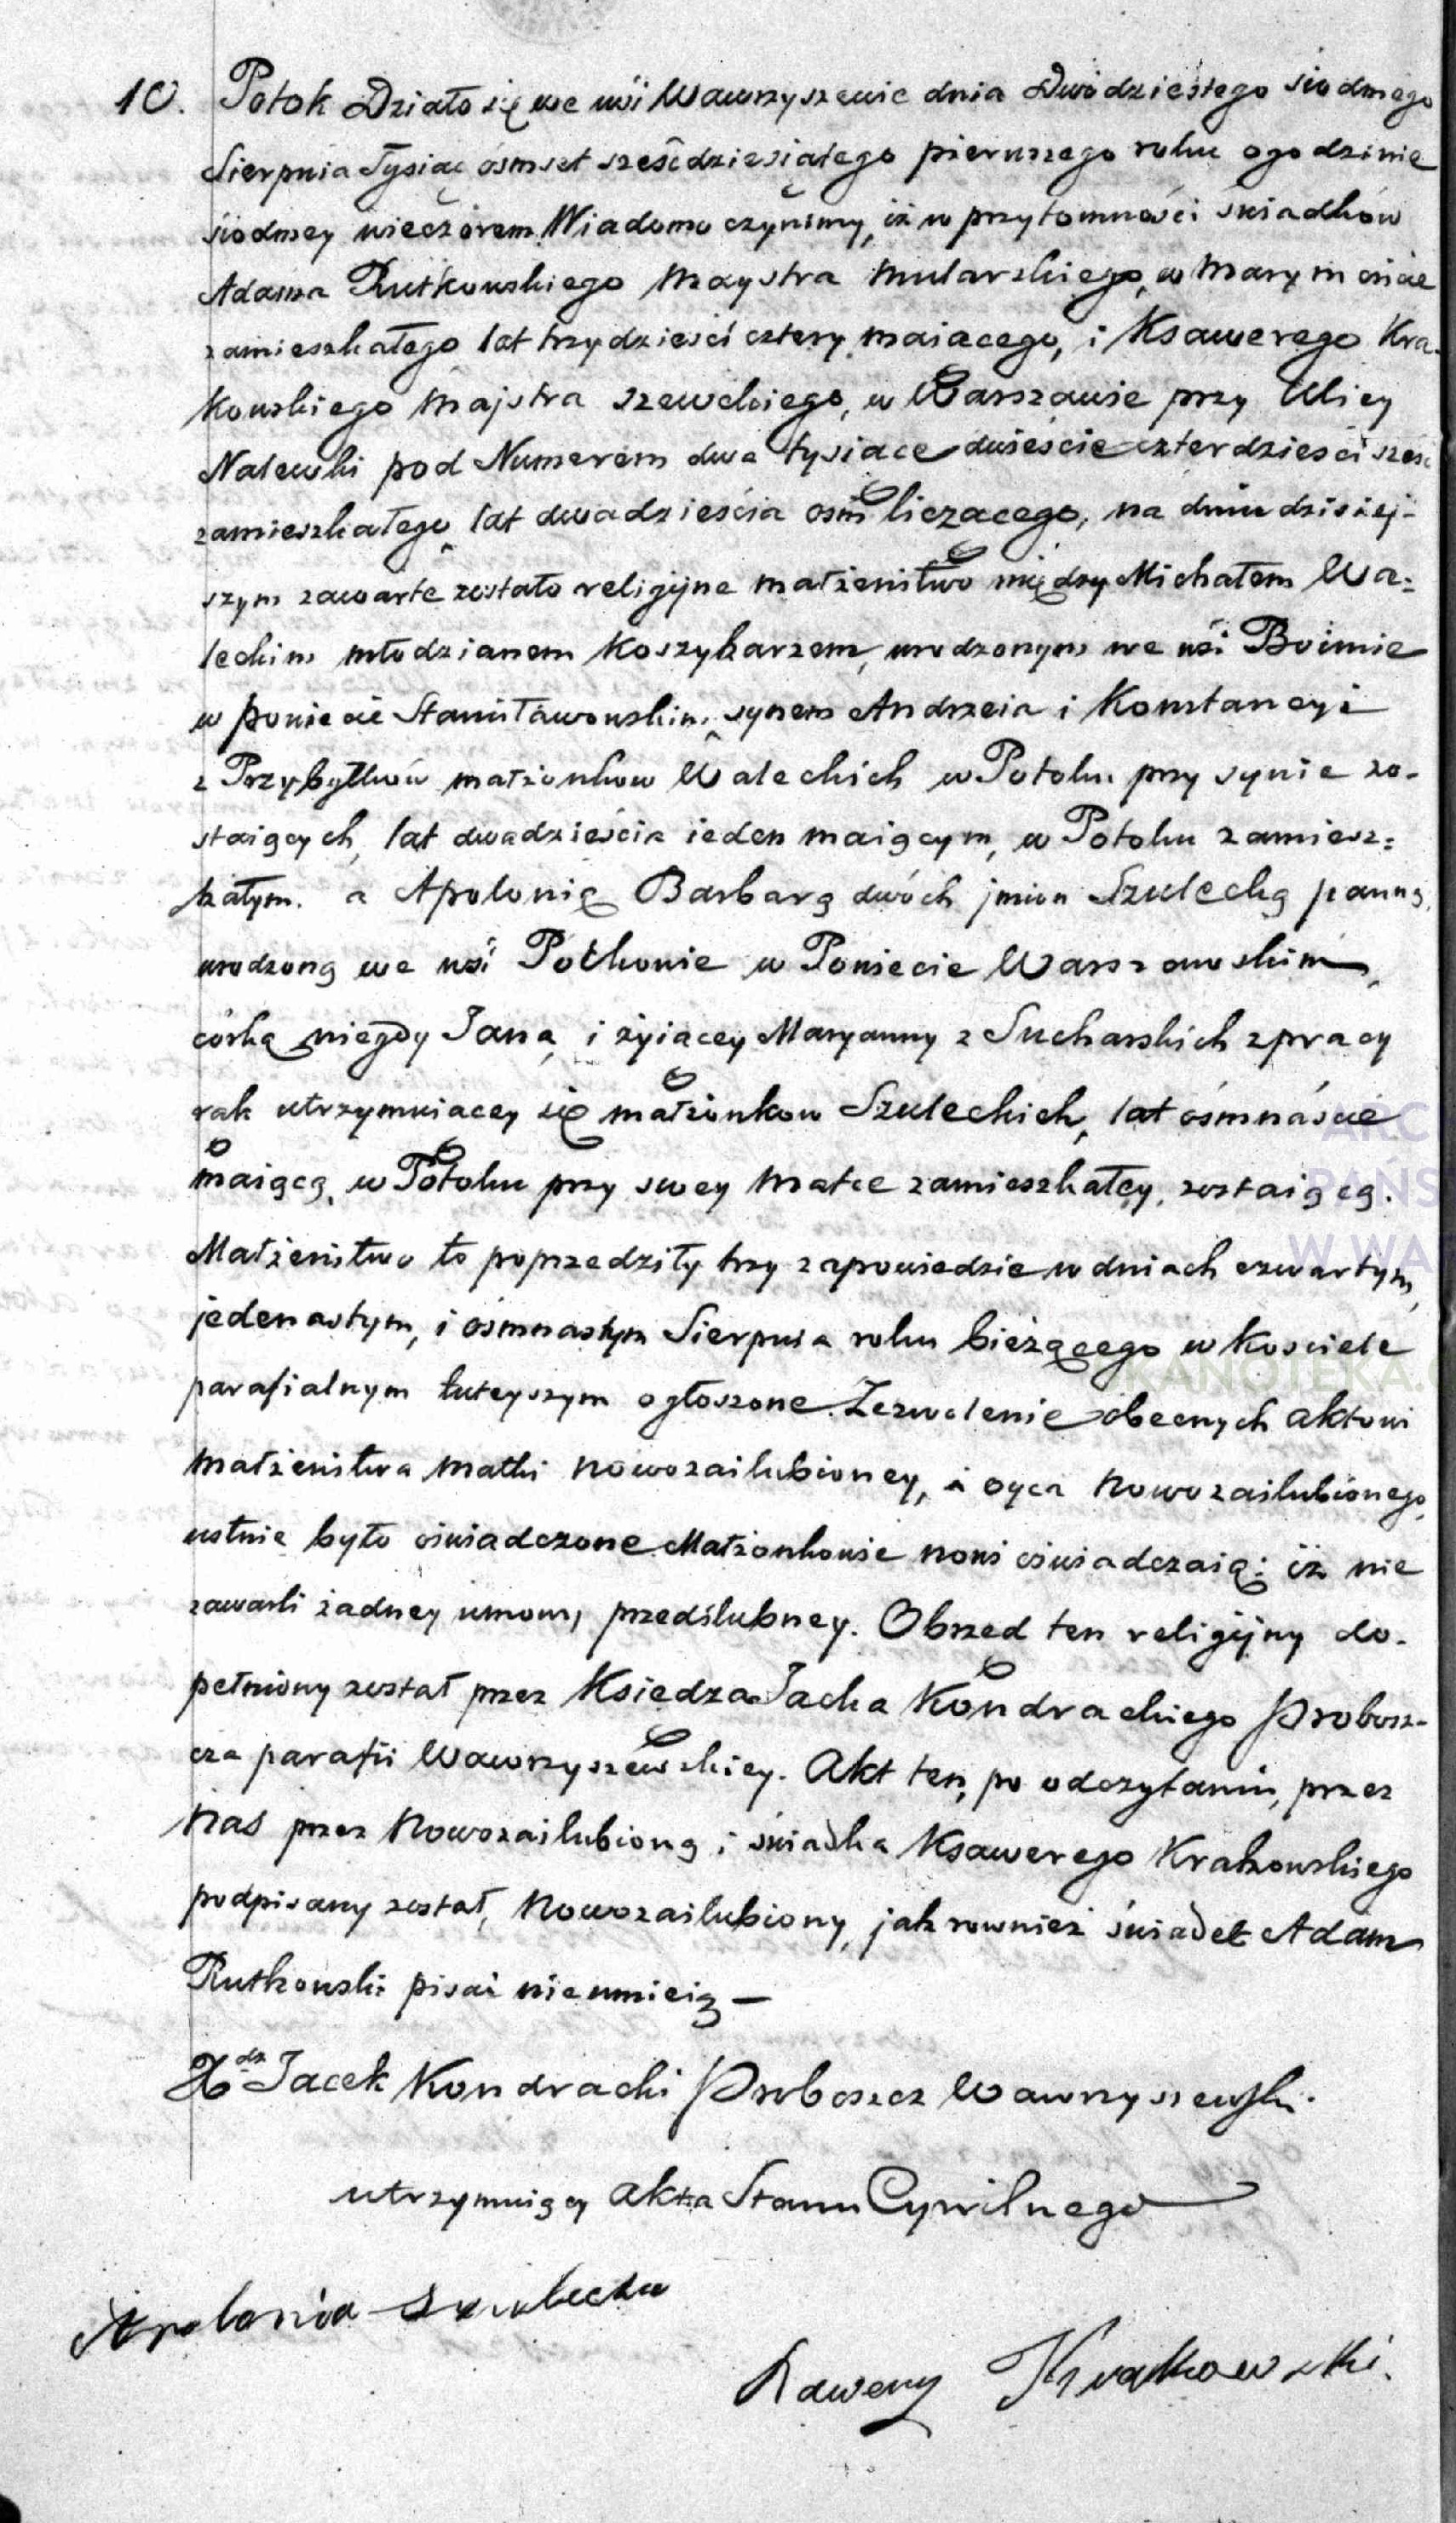 10. Potok Działo się we wsi Wawrzyszewie dnia Dwódziestego siodmego
Sierpnia Tysiąc ósmset sześcdziesiątego pierwszego roku ogodzinie
siodmey wieczorem. Wiadomo czynimy, iż w przytomności świadków
Adama Rutkowskiego Maystra Mularskiego, w Marymoncie
zamieszkałego lat trzydzieści cztery maiacego, i Ksawerego Kra-
kowskiego Majstra szewckiego, w Warszawie przy Ulicy
Nalewki pod Numerem dwa tysiace dwieście czterdzieści sześć
zamieszkałego, lat dwadzieścia osm liczacego, na dniu dzisiej-
szym zawarte zostało religijne małżeństwo między Michałem Wa-
leckim młodzianem Koszykarzem, urodzonym we wsi Boimie
w powiecie Stanisławowskim, synem Andrzeia i Konstancyi
z Przybytków małżonkow Waleckich w Potoku przy synie zo-
staiących, lat dwadzieścia ieden maiącym, w Potoku zamiesz-
kałym. a Apolonią Barbarą dwóch jmion Szulecką panną,
urodzoną we wsi Połkowie w Powiecie Warszawskim,
córką niegdy Jana, i żyiacey Maryanny z Sucharskich z pracy
rak utrzymuiacey się małżonkow Szuleckich, lat ośmnaście
maiącą, w Potoku przy swey Matce zamieszkałey, zostaiącą.
Małżeństwo to poprzedziły trzy zapowiedzie w dniach czwartym,
jedenastym, i ośmnastym Sierpnia roku bieżącego w Kosciele
parafialnym tuteyszym ogłoszone. Zezwolenie obecnych aktowi
Małżeństwa Matki Nowozaślubioney, i oyca Nowozaślubionego,
ustnie było oświadczone. Małżonkowie nowi oświadczaią: iż nie
zawarli żadney umowy przedślubney. Obrzed ten religijny do-
pełniony został przez Ksiedza Jacka Kondrackiego Probosz-
cza parafii Wawrzyszewskiey. Akt ten, po odczytaniu, przez
Nas przez Nowozaślubioną i świadka Ksawerego Krakowskiego
podpisany został, Nowozaślubiony, jak rownież świadek Adam
Rutkowski pisać nieumieią —
Xdz Jacek Kondracki Proboszcz Wawrzyszewski.
utrzymuiący akta Stanu Cywilnego
Apolonia Szulecka
Ksawery Krakowski.